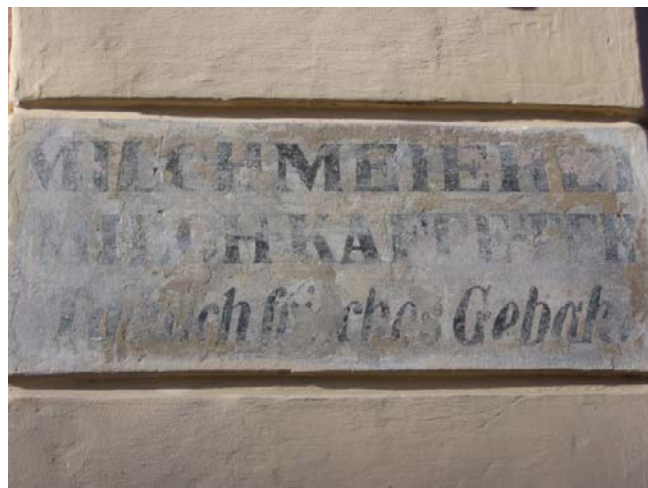 MILCHMEIEREI
MILCH KAFFE TEE
Täglich frisches Gebäk